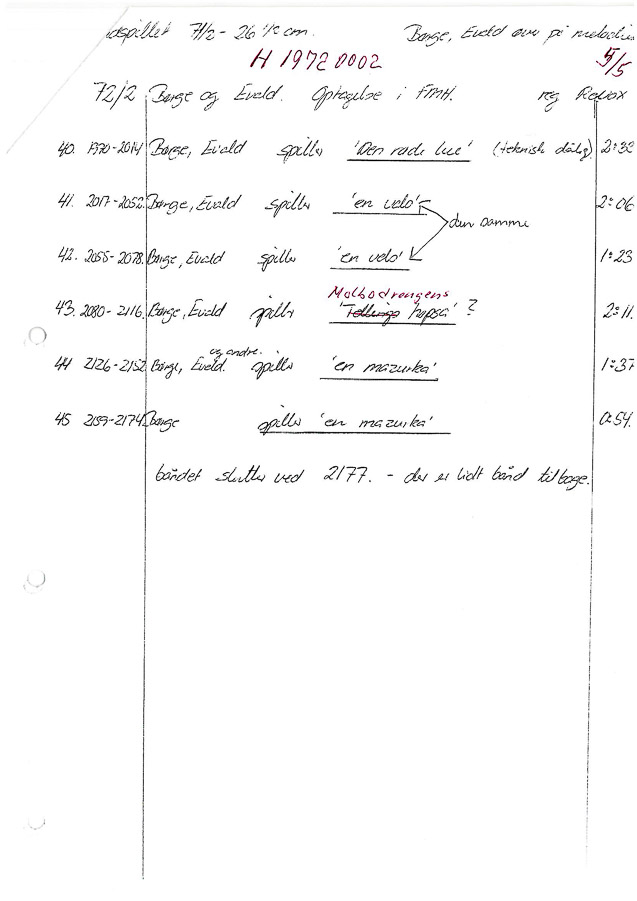 dspillet 7 1/2 - 26 1/2 cm. Børge, Evald over på melodi
H 1972 0002 5/5
72/2 Børge og Evald. Optagelse i FMH. reg Revox
40. 1970-2014 Børge, Evald spiller 'Den røde lue' (teknisk dårlig) 2:33
41. 2017-2052 Børge, Evald spiller 'en vals' 2:06
den samme
42. 2055-2078. Børge, Evald spiller 'en vals' 1:23
Molbodrengens
43. 2080-2116. Børge, Evald spiller 'Tellings hopsa' ? 2:11.
og andre.
44 2126-2152 Børge, Evald. spiller 'en mazurka' 1:37
45 2159-2174 Børge spiller 'en mazurka' 0:54.
båndet slutter ved 2177. - der er lidt bånd tilbage.